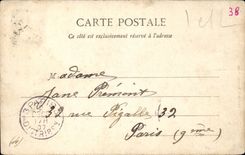 38
CARTE POSTALE
Ce côté est exclusivement réservé à l'adresse
Madame
Jane Frémont
32 rue Pigalle 32
Paris (9ème)